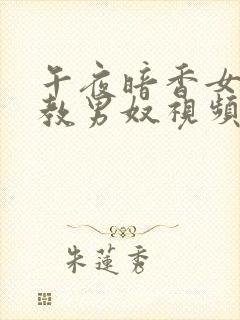 午夜暗香女
教男奴視頻
朱蓮秀